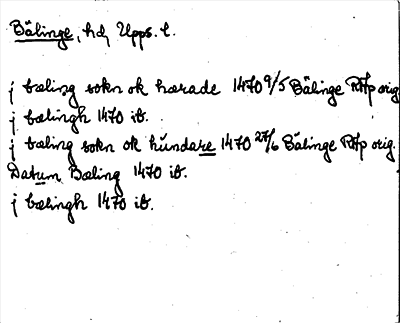 Bälinge, hd, Upps. l.
j bæling sokn ok hærade 1470 9/5 Bälinge RAp orig
j bælingh 1470 ib.
j bæling sokn ok hundare 1470 27/6 Bälinge RAp orig.
Datum Bæling 1470 ib.
j bælingh 1470 ib.